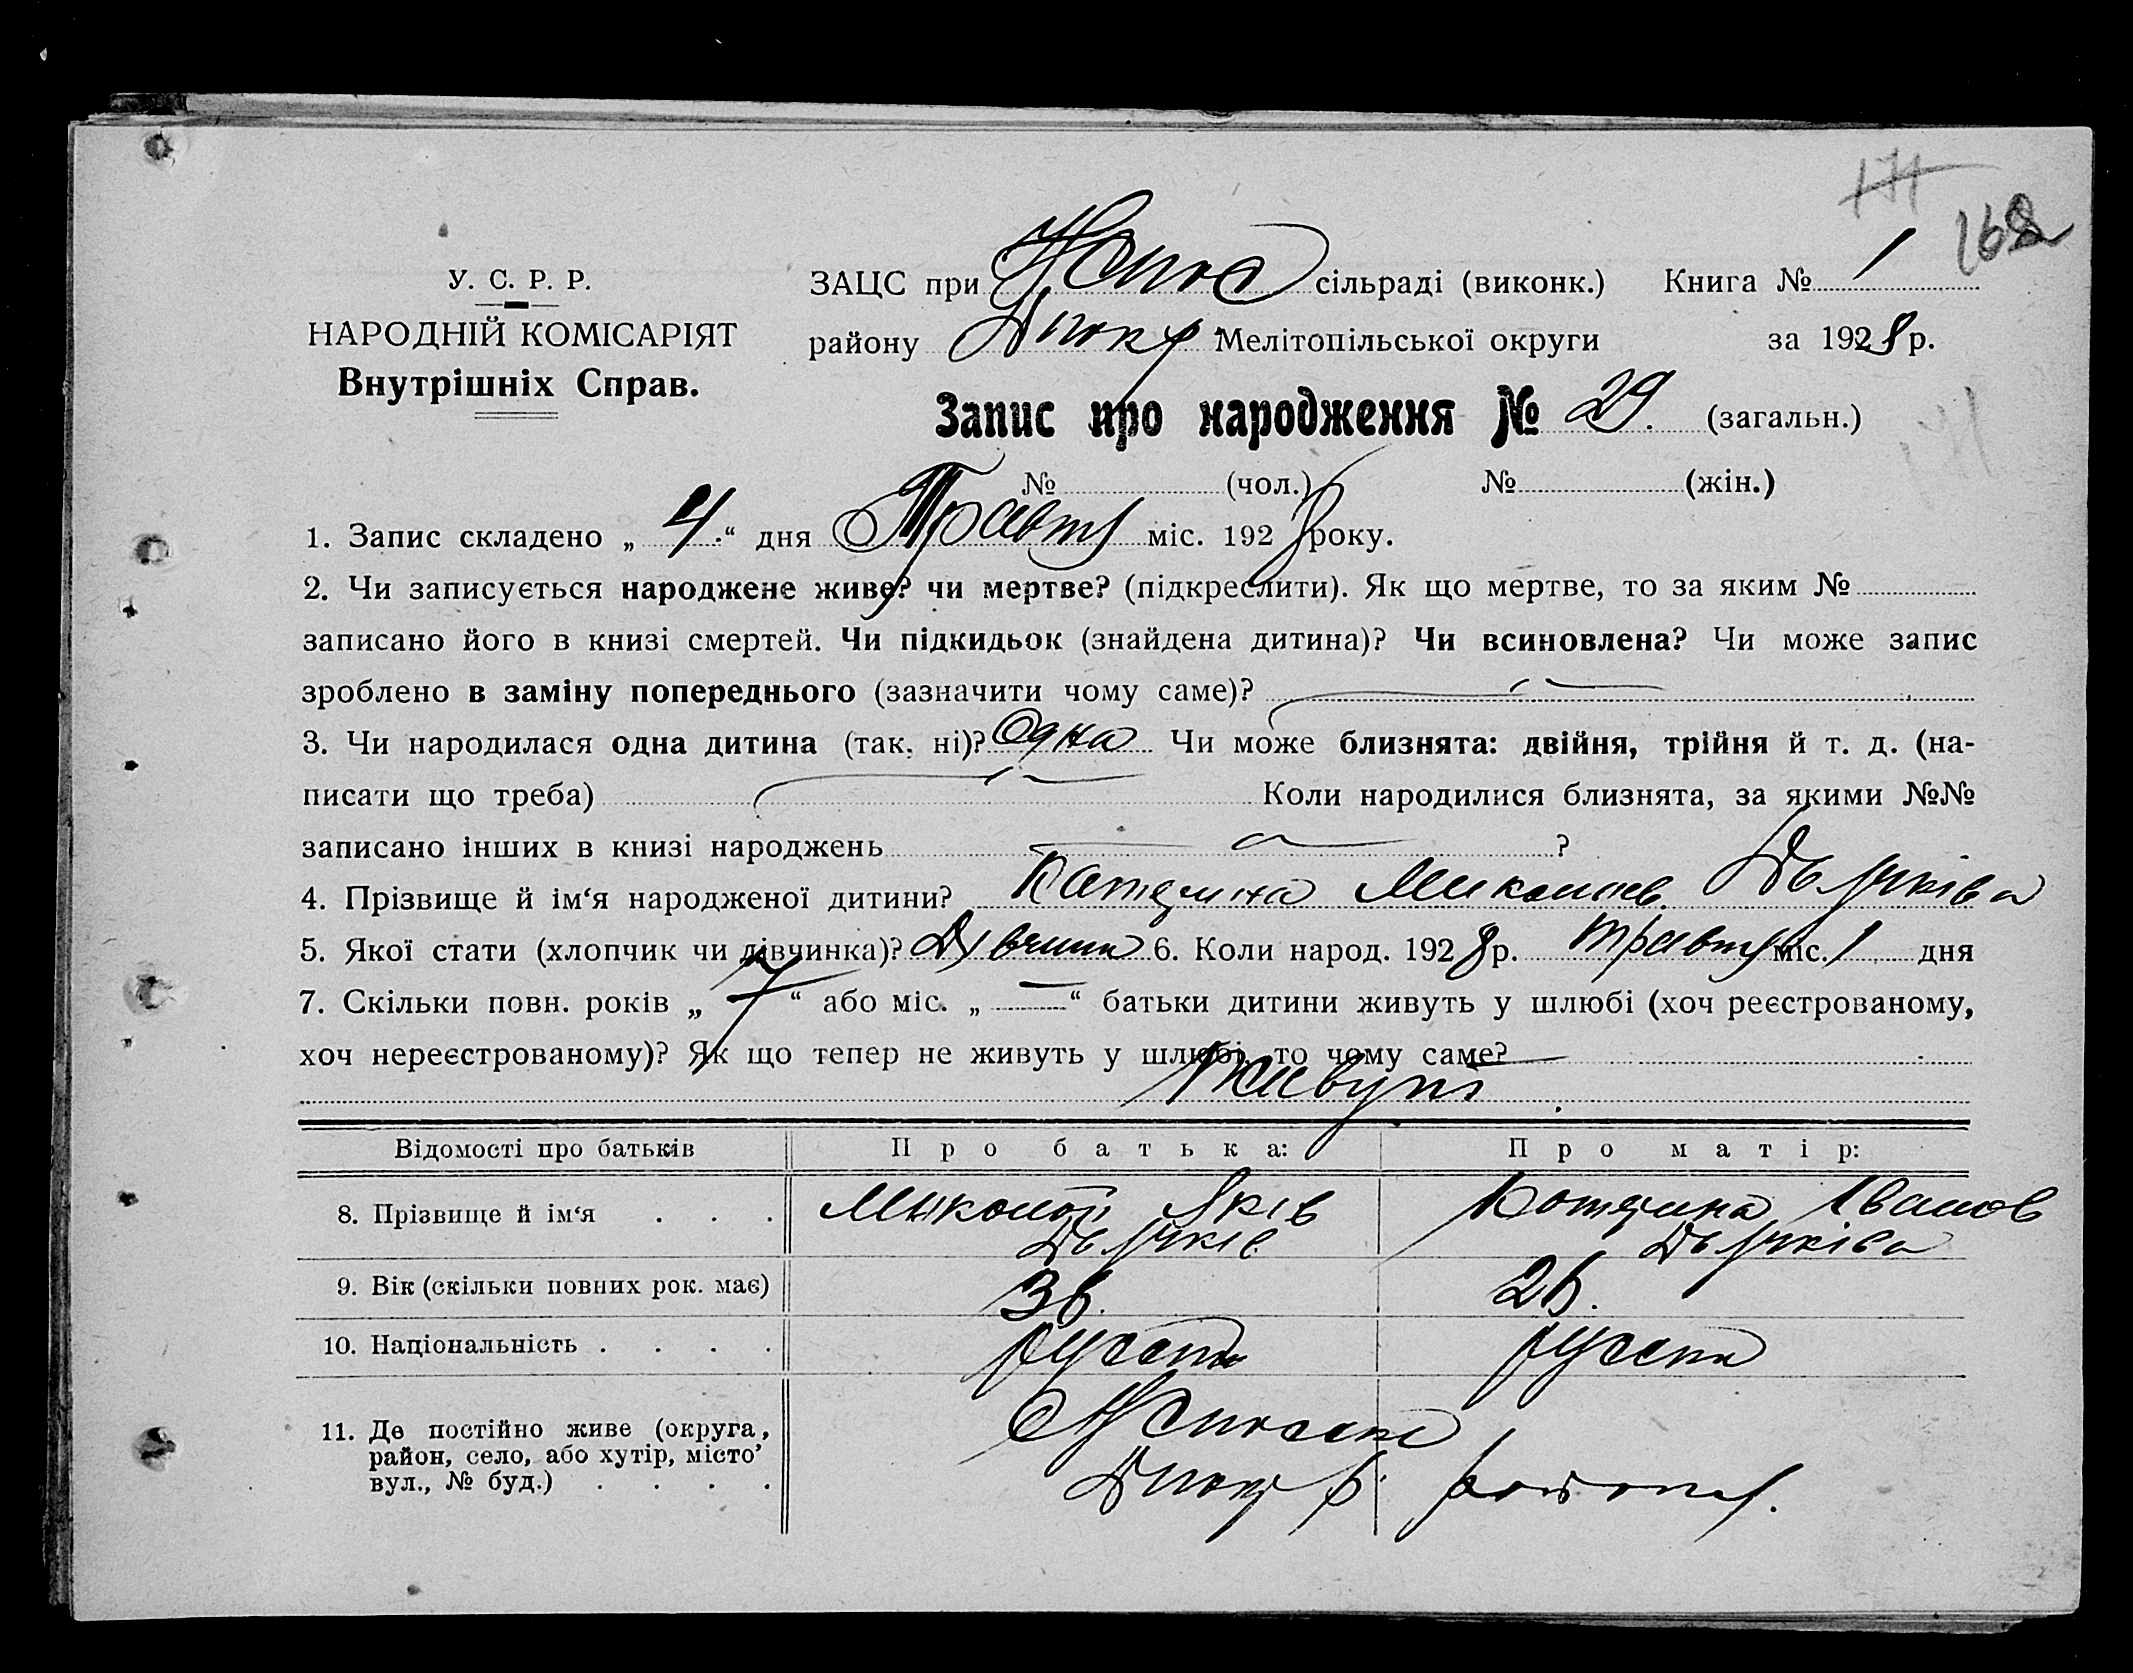 171
168
У. С. Р. Р.
НАРОДНІЙ КОМІСАРІЯТ
Внутрішніх Справ.
ЗАЦС при сільраді (виконк.) Книга № 1
району Мелітопільської округи за 1928 р.
Запис про народження № 29. (загальн.)
№ (чол.) № (жін.)
1. Запис складено „ 4 “ дня Травня міс. 1928 року.
2. Чи записується народжене живе? чи мертве? (підкреслити). Як що мертве, то за яким №
записано його в книзі смертей. Чи підкидьок (знайдена дитина)? Чи всиновлена? Чи може запис
зроблено в заміну попереднього (зазначити чому саме)?
3. Чи народилася одна дитина (так, ні)? Одна Чи може близнята: двійня, трійня й т. д. (на-
писати що треба) Коли народилися близнята, за якими №№
записано інших в книзі народжень ?
4. Прізвище й ім‘я народженої дитини? Катерина Миколаев.
5. Якої стати (хлопчик чи дівчинка)? 6. Коли народ. 1928 р. травня міс. 1 дня
7. Скільки повн. років „ 7 “ або міс. „ — “ батьки дитини живуть у шлюбі (хоч реєстрованому,
хоч нереєстрованому)? Як що тепер не живуть у шлюбі, то чому саме?
Живуть
Відомості про батьків Про батька: Про матір:
8. Прізвище й ім‘я . . . Миколай Яків Катерина Іванов
9. Вік (скільки повних рок. має) 36. 26.
10. Національність . . . .
11. Де постійно живе (округа,
район, село, або хутір, місто’
вул., № буд.) . . . . району.